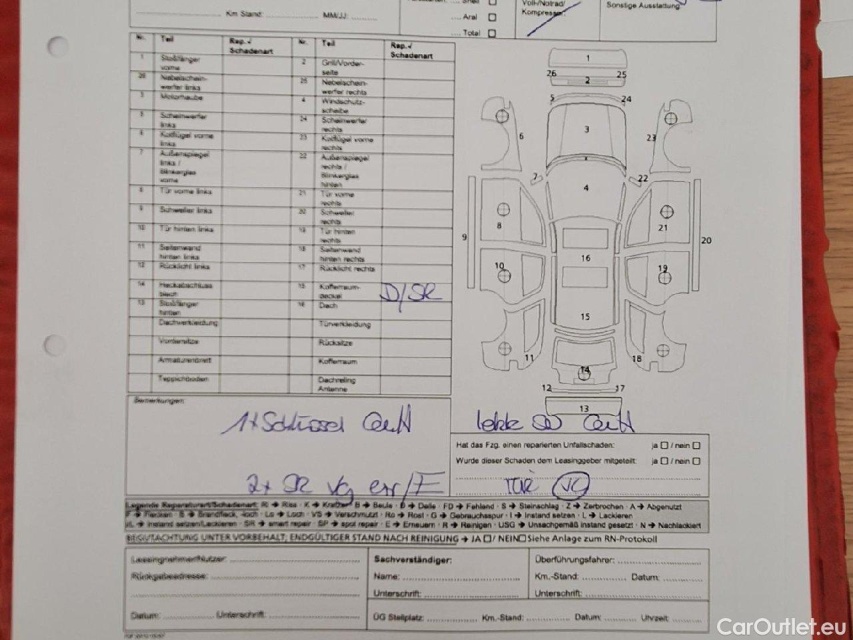 Km Stand: MM/JJ:
Shell
Aral
Total
Voll-/Notrad/
Kompressor
Sonstige Ausstattung:
Nr. Teil Rep./ Schadenart Nr. Teil Rep./ Schadenart
1 Stoßfänger vorne 2 Grill/Vorder-seite
26 Nebelschein-werfer links 25 Nebelschein-werfer rechts
3 Motorhaube 4 Windschutz-scheibe
5 Scheinwerfer links 24 Scheinwerfer rechts
6 Kotflügel vorne links 23 Kotflügel vorne rechts
7 Außenspiegel links / Blinkerglas vorne 22 Außenspiegel rechts / Blinkerglas hinten
8 Tür vorne links 21 Tür vorne rechts
9 Schweller links 20 Schweller rechts
10 Tür hinten links 19 Tür hinten rechts
11 Seitenwand hinten links 18 Seitenwand hinten rechts
12 Rücklicht links 17 Rücklicht rechts
14 Heckabschluss blech 15 Kofferraum-deckel D/SR
13 Stoßfänger hinten 16 Dach
Dachverkleidung Türverkleidung
Vordersitze Rücksitze
Armaturenbrett Kofferraum
Teppichboden Dachreling Antenne
1
26 2 25
5 24
3
6 23
7 22
4
8 21
9 20
16
10 19
15
11 18
14
12 17
13
Bemerkungen:
1x Schlüssel
2x SR
Hat das Fzg. einen reparierten Unfallschaden: ja / nein
Wurde dieser Schaden dem Leasinggeber mitgeteilt: ja / nein
Legende Reparaturart/Schadenart: RI → Riss · K → Kratzer B → Beule · D → Delle · FD → Fehlend · S → Steinschlag · Z → Zerbrochen · A → Abgenutzt
F → Flecken · B → Brandfleck, -loch · Lo → Loch · VS → Verschmutzt · Ro → Rost · G → Gebrauchsspur · I → Instand setzen · L → Lackieren
I/L → Instand setzen/Lackieren · SR → smart repair · SP → spot repair · E → Erneuern · R → Reinigen · USG → Unsachgemäß instand gesetzt · N → Nachlackiert
BEGUTACHTUNG UNTER VORBEHALT, ENDGÜLTIGER STAND NACH REINIGUNG → JA / NEIN Siehe Anlage zum RN-Protokoll
Leasingnehmer/Nutzer: Sachverständiger: Überführungsfahrer:
Rückgabeadresse: Name: Km.-Stand: Datum:
Unterschrift: Unterschrift:
Datum: Unterschrift: ÜG Stellplatz: Km.-Stand: Datum: Uhrzeit:
CarOutlet.eu